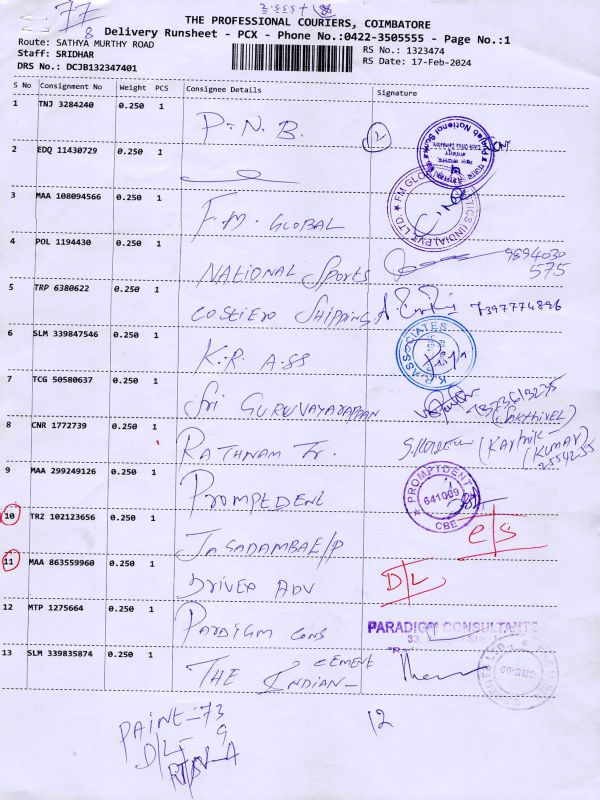 77
8
THE PROFESSIONAL COURIERS, COIMBATORE
Delivery Runsheet - PCX - Phone No.:0422-3505555 - Page No.:1
Route: SATHYA MURTHY ROAD
RS No.: 1323474
Staff: SRIDHAR
RS Date: 17-Feb-2024
DRS No.: DCJB132347401
S No Consignment No Weight PCS Consignee Details Signature
1 TNJ 3284240 0.250 1 P.N.B.
2
2 EDQ 11430729 0.250 1
3 MAA 108094566 0.250 1 F.M. GLOBAL
4 POL 1194430 0.250 1 NATIONAL Sports 9894030
575
5 TRP 6380622 0.250 1 COSTIERO SHIPPING 7397774896
6 SLM 339847546 0.250 1 K.R. ASS
K.R. ASSOCIATES
7 TCG 50580637 0.250 1 Sri GURUVAYARAPPAN
(SAKTHIVEL)
8 CNR 1772739 0.250 1 RATHNAM Tr. (KARTHIK
(KUMAR)
9 MAA 299249126 0.250 1 PROMPTDENT
PROMPTDENT
641009
CBE
10 TRZ 102123656 0.250 1 e/s
11 MAA 863559960 0.250 1 DRIVER ADV D/L
12 MTP 1275664 0.250 1 PARADIGM CONS
PARADIGM CONSULTANTS
13 SLM 339835874 0.250 1 THE INDIAN CEMENT
12
D/L- 9